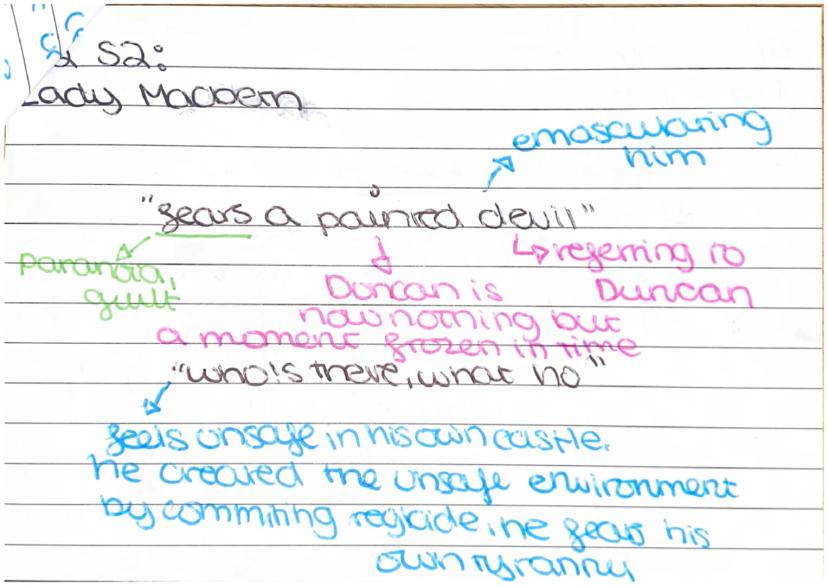 S2:
Lady Macbeth
emasculating
him
"fears a painted devil"
↳ referring to
paranoia,
guilt
Duncan is
Duncan
now nothing but
a moment frozen in time
"who's there, what ho"
feels unsafe in his own castle.
he created the unsafe environment
by commiting regicide, he fears his
own tyranny